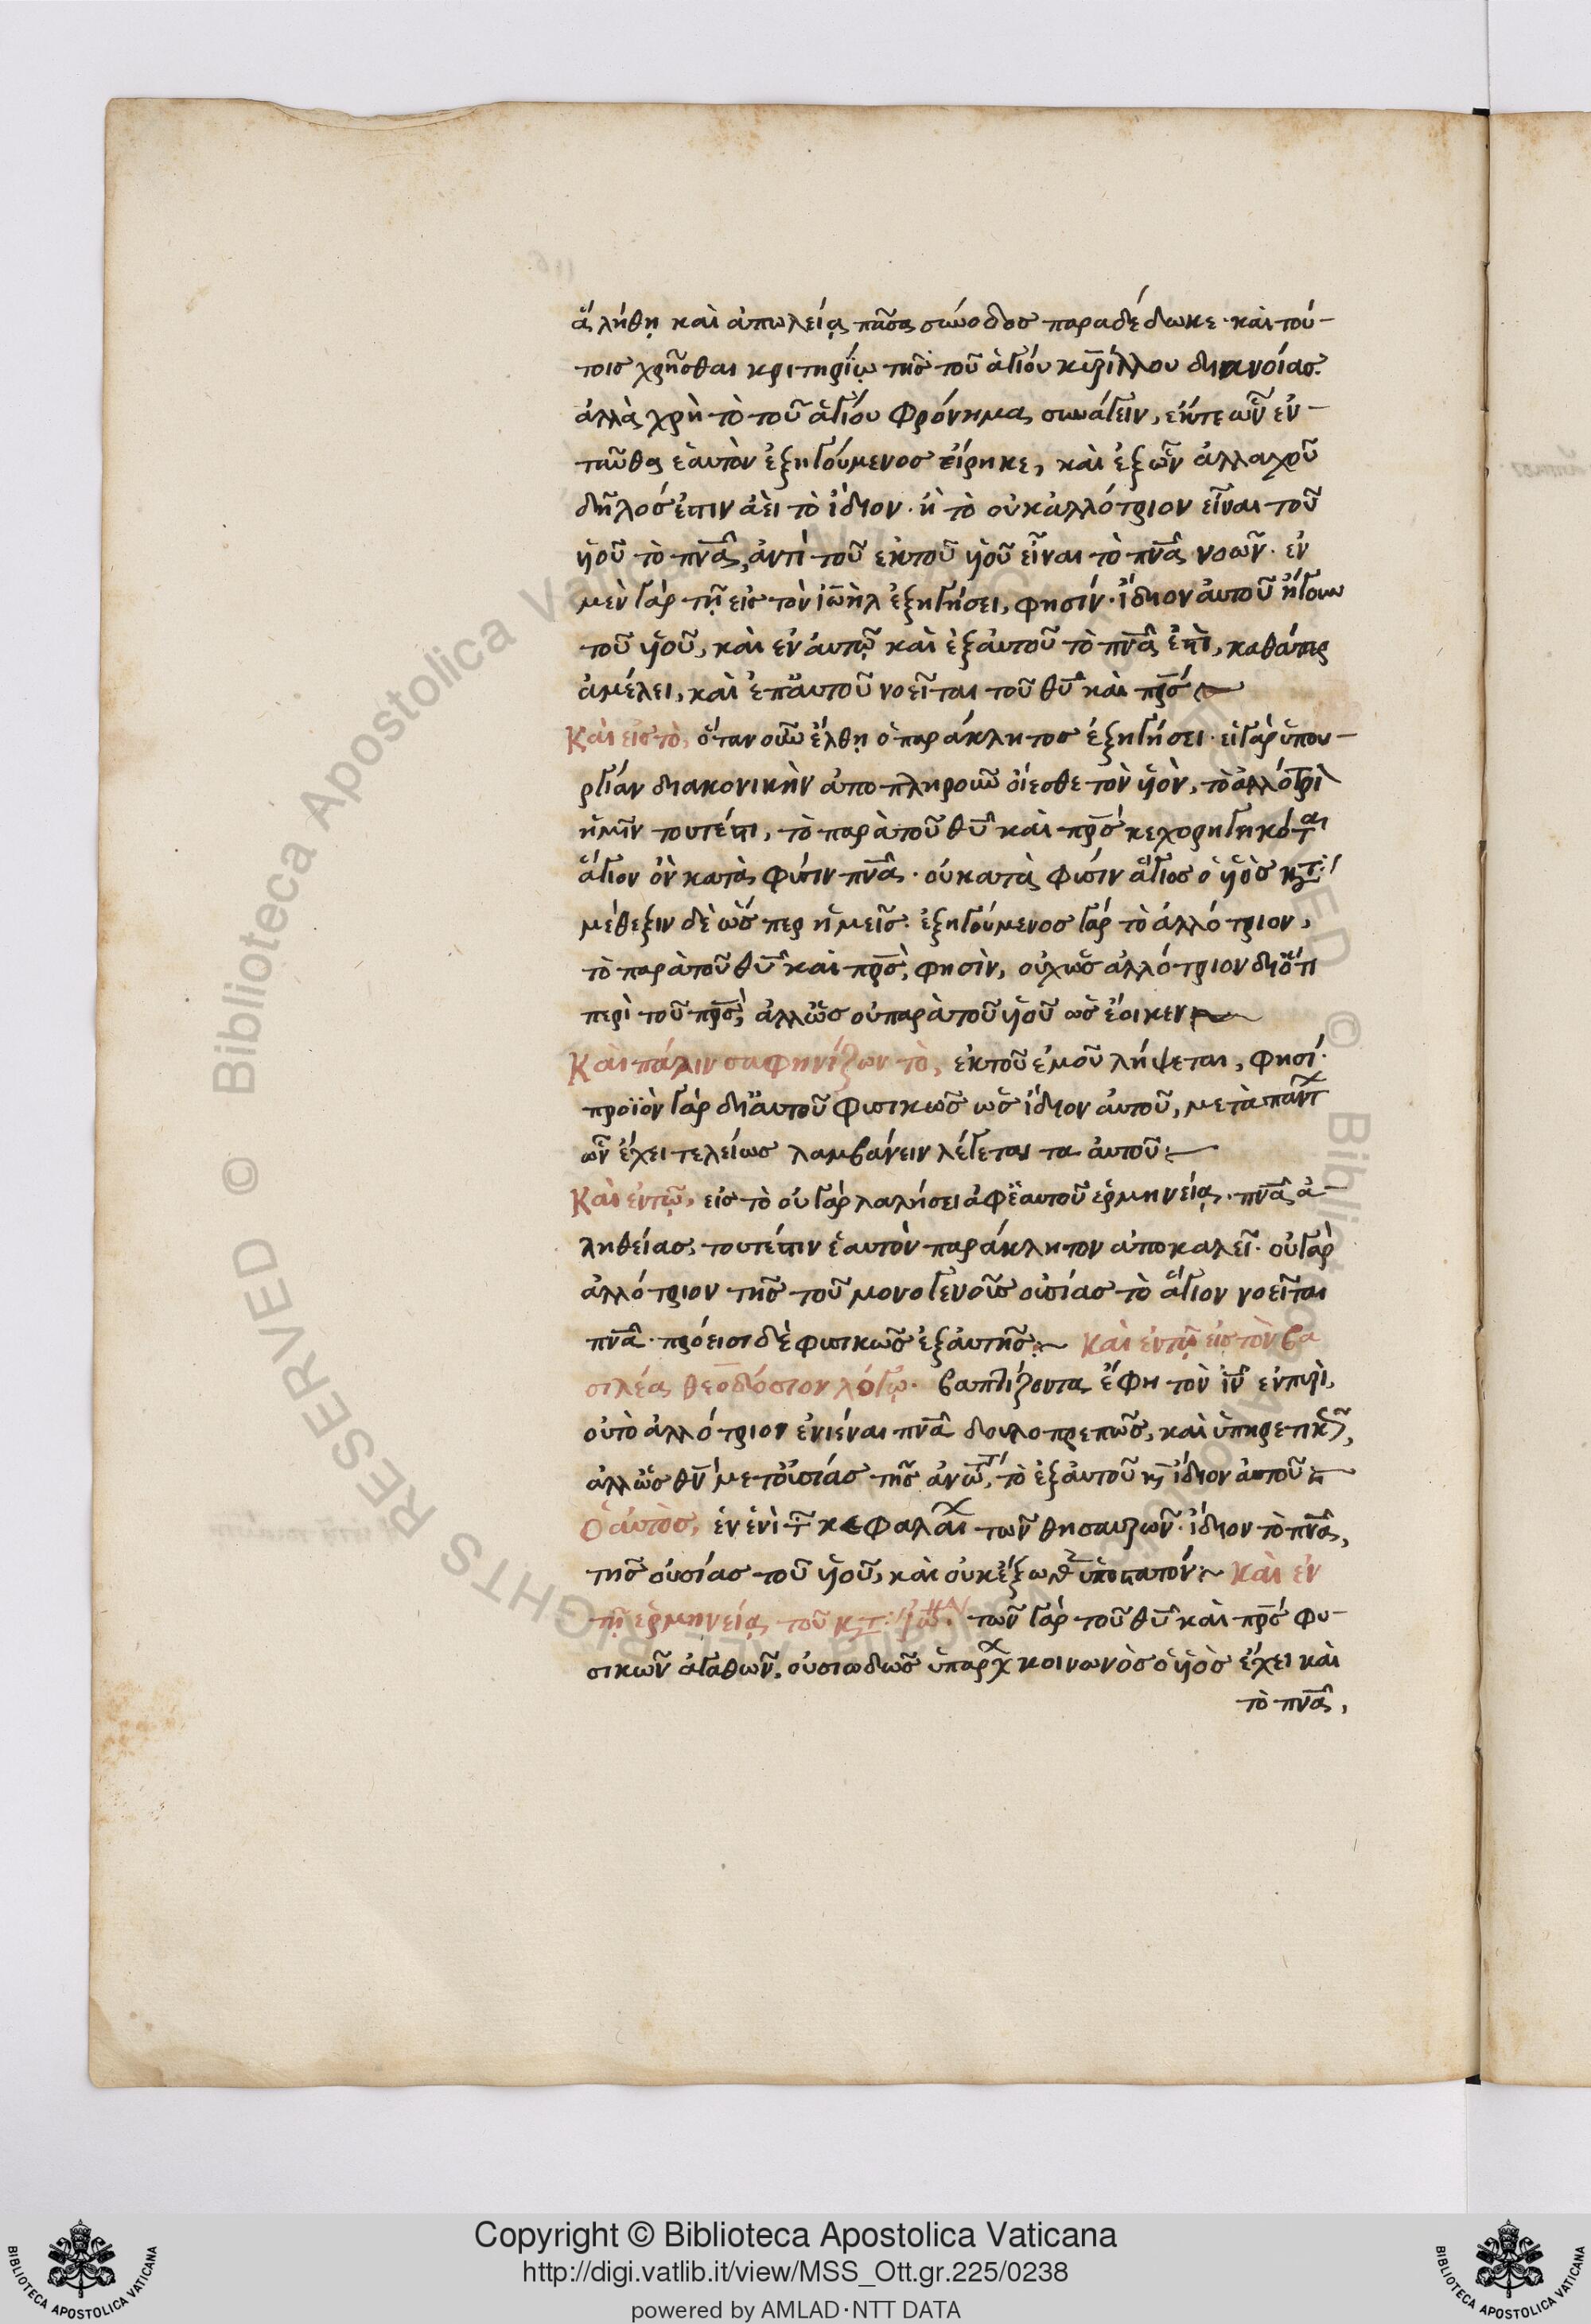 ἃ λήθῃ καὶ ἀπωλείᾳ πᾶσα σύνοδος παραδέδωκε· καὶ τού-
τοις χρῆσθαι κριτηρίῳ τῆς τοῦ ἁγίου κυρίλλου διανοίας.
ἀλλὰ χρὴ τὸ τοῦ ἁγίου φρόνημα συνάγειν, εἴκτε ὧν ἐν-
ταῦθα ἑαυτὸν ἐξηγούμενος εἴρηκε, καὶ ἐξ ὧν ἀλλαχοῦ
δῆλός ἐστιν ἀεὶ τὸ ἴδιον· ἢ τὸ οὐκ ἀλλότριον εἶναι τοῦ
ὑιοῦ τὸ πνᾶ, ἀντὶ τοῦ ἐκ τοῦ ὑιοῦ εἶναι τὸ πνᾶ νοῶν· ἐν
μὲν γὰρ τῇ εἰς τὸν ἰωὴλ ἐξηγήσει, φησίν· ἴδιον αὐτοῦ ἤγουν
τοῦ ὑιοῦ, καὶ ἐν αὐτῷ καὶ ἐξ αὐτοῦ τὸ πνᾶ ἐστὶ, καθάπερ
ἀμέλει, καὶ ἐπ' αὐτοῦ νοεῖται τοῦ θῦ καὶ πρς
Καὶ εἰς τὸ, ὅταν οὖν ἔλθῃ ὁ παράκλητος ἐξηγήσει· εἰ γὰρ ὑπου-
ργίαν διακονικὴν ἀποπληροῦν οἴεσθε τὸν ὑιὸν, τὸ ἀλλότρι
ἡμῖν τουτέστι, τὸ παρὰ τοῦ θῦ καὶ πρς κεχορηγηκότα
ἅγιον ὂν κατὰ φύσιν πνᾶ· οὐ κατὰ φύσιν ἅγιος ὁ ὑιὸς κτ
μέθεξιν δὲ ὥσπερ ἡμεῖς· ἐξηγούμενος γὰρ τὸ ἀλλότριον,
τὸ παρὰ τοῦ θῦ καὶ πρς, φησὶν, οὐχ ὡς ἀλλότριον διότι
περὶ τοῦ πρς, ἀλλ' ὡς οὐ παρὰ τοῦ ὑιοῦ ὡς ἔοικεν
Καὶ πάλιν σαφηνίζων τὸ, ἐκ τοῦ ἐμοῦ λήψεται, φησί·
προϊὸν γὰρ δι' αὐτοῦ φυσικῶς ὡς ἴδιον αὐτοῦ, μετὰ παντ
ὧν ἔχει τελείως λαμβάνειν λέγεται τα αὐτοῦ:
Καὶ ἐν τῷ, εἰς τὸ οὐ γὰρ λαλήσει ἀφ' ἑαυτοῦ ἑρμηνείᾳ· πνᾶ ἀ-
ληθείας, τουτέστιν ἑαυτὸν παράκλητον ἀποκαλεῖ· οὐ γὰρ
ἀλλότριον τῆς τοῦ μονογενοῦς οὐσίας τὸ ἅγιον νοεῖται
πνᾶ· πρόεισι δὲ φυσικῶς ἐξ αὐτῆς: Καὶ ἐν τῷ εἰς τὸν βα
σιλέα θεοδόσιον λόγῳ· βαπτίζοντα ἔφη τὸν ἰν ἐν πυρὶ,
οὐ τὸ ἀλλότριον ἐνιέναι πνᾶ δουλοπρεπῶς, καὶ ὑπηρετικῶς,
ἀλλ' ὡς θν μετ' οὐσίας τῆς ἀνωτ, τὸ ἐξ αὐτοῦ κ ἴδιον αὐτοῦ
Ὁ αὐτὸς, ἐν ἑνὶ τ κεφαλαι τῶν θησαυρῶν· ἴδιον τὸ πνᾶ,
τῆς οὐσίας τοῦ ὑιοῦ, καὶ οὐκ ἔξωθ ὑποστατόν: Καὶ ἐν
τῇ ἑρμηνείᾳ τοῦ κτ: ἰω. τῶν γὰρ τοῦ θῦ καὶ πρς φυ-
σικῶν ἀγαθῶν, οὐσιωδῶς ὑπαρχ κοινωνὸς ὁ ὑιὸς ἔχει καὶ
τὸ πνᾶ,
© Biblioteca Apostolica Vaticana
ALL RIGHTS RESERVED
Copyright © Biblioteca Apostolica Vaticana
http://digi.vatlib.it/view/MSS_Ott.gr.225/0238
powered by AMLAD·NTT DATA
BIBLIOTECA APOSTOLICA VATICANA
BIBLIOTECA APOSTOLICA VATICANA